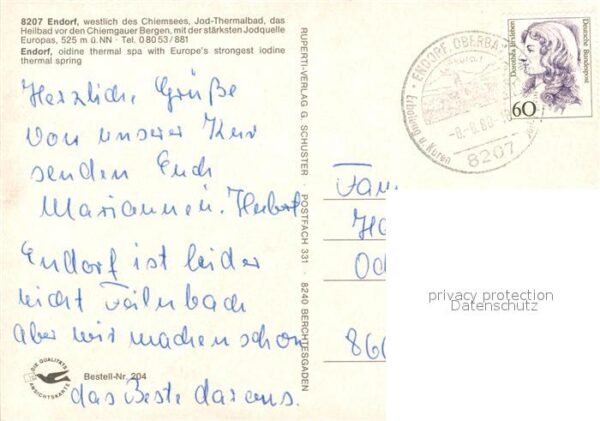 8207 Endorf, westlich des Chiemsees, Jod-Thermalbad, das
Heilbad vor den Chiemgauer Bergen, mit der stärksten Jodquelle
Europas, 525 m ü. NN · Tel. 0 80 53 / 881
Endorf, oidine thermal spa with Europe's strongest iodine
thermal spring
Herzliche Grüße
von unserer Kur
senden Euch
Marianne u. Herbert
Endorf ist leider
nicht Feilnbach
Aber wir machen schon
das Beste daraus.
DIE QUALITÄTS
ANSICHTSKARTE
Bestell-Nr. 204
RUPERTI-VERLAG G. SCHUSTER · POSTFACH 331 · 8240 BERCHTESGADEN
ENDORF, OBERB
Erholung u. Kuren
8207
Dorothea Erxleben
Deutsche Bundespost
60
Fam
Ha
Och
866
privacy protection
Datenschutz